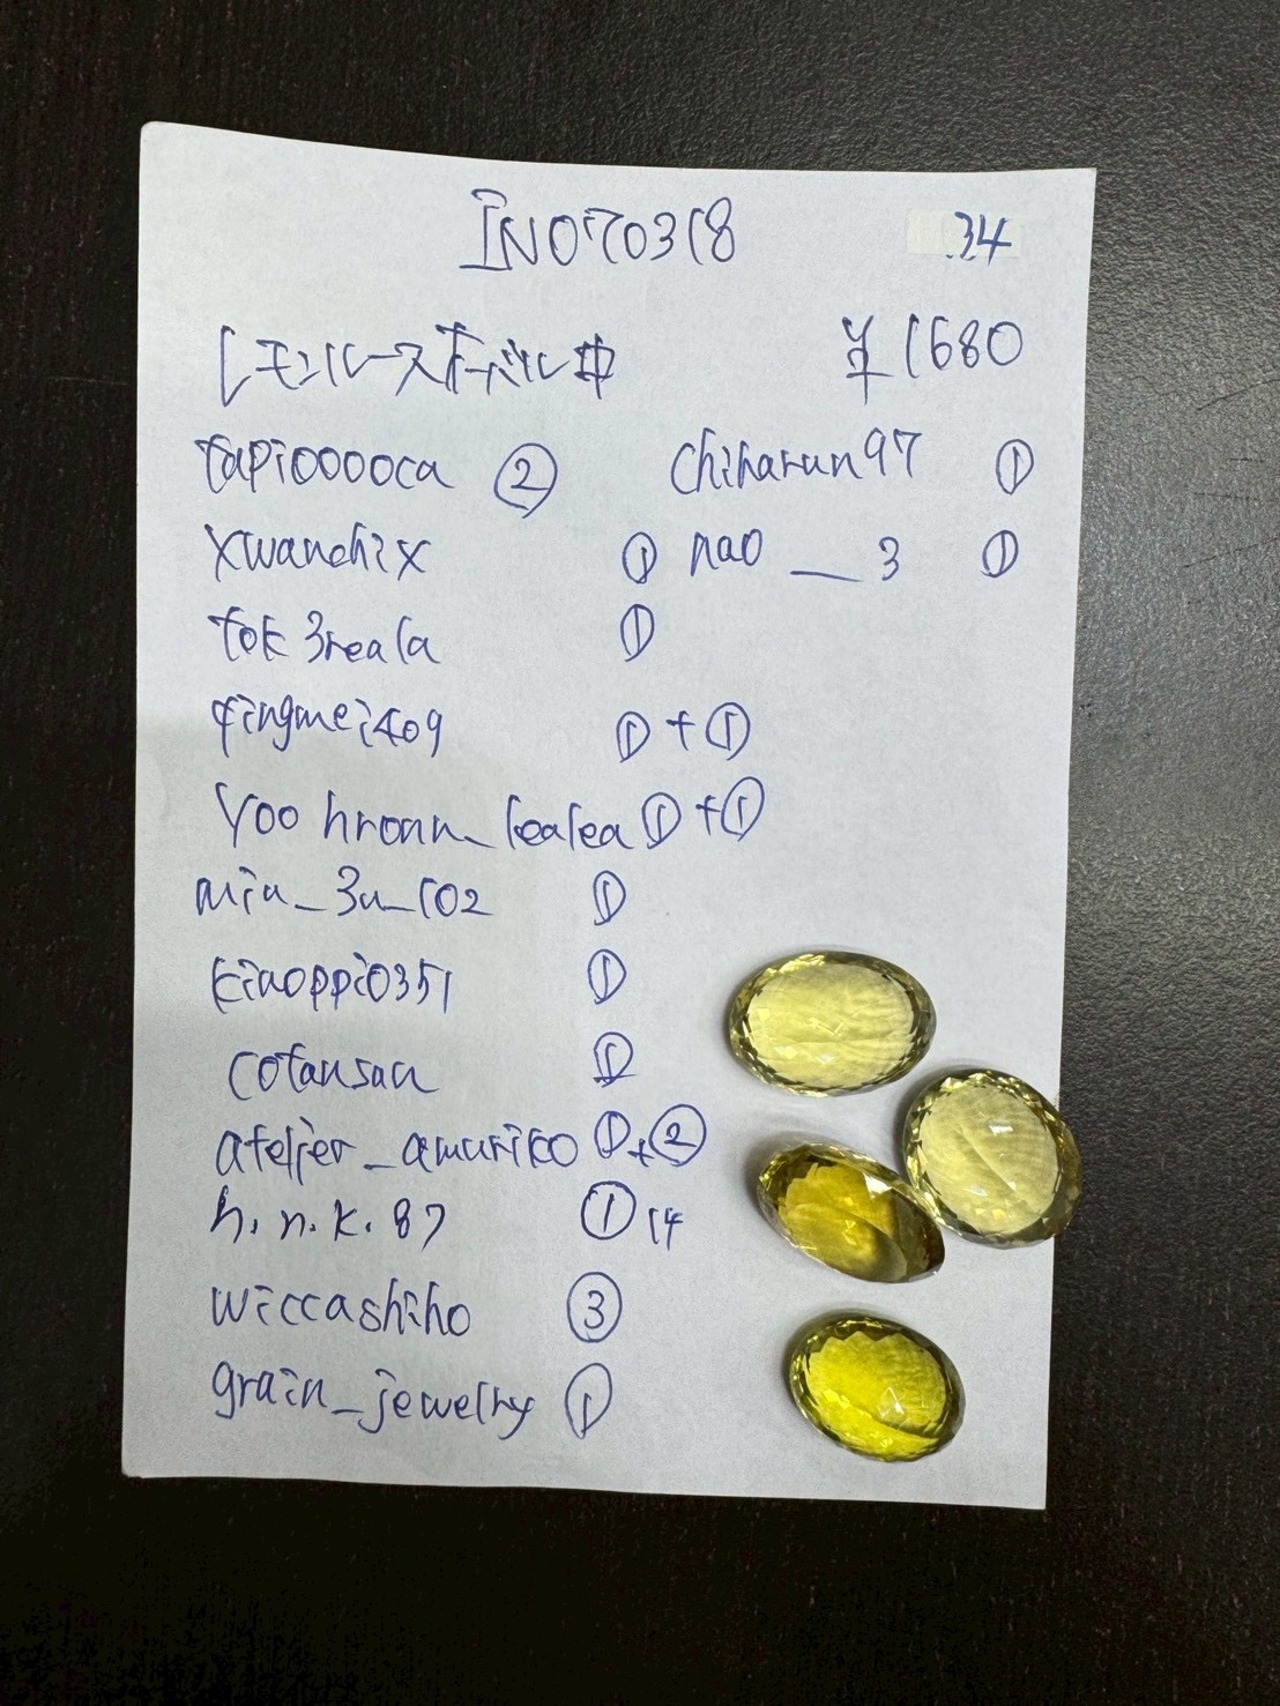 INO70318 34
レモンルースオーバル中 ¥1680
tapiooooca ② chiharun97 ①
xwanchix ① nao __ 3 ①
tok3reala ①
qingmei409 ①+①
yoo hronn_lealea ①+①
miu_3u_102 ①
kinoppi0351 ①
cotansan ①
atelier_amuriko ①+②
h.n.k.87 ① 14
wiccashiho ③
grain_jewelry ①